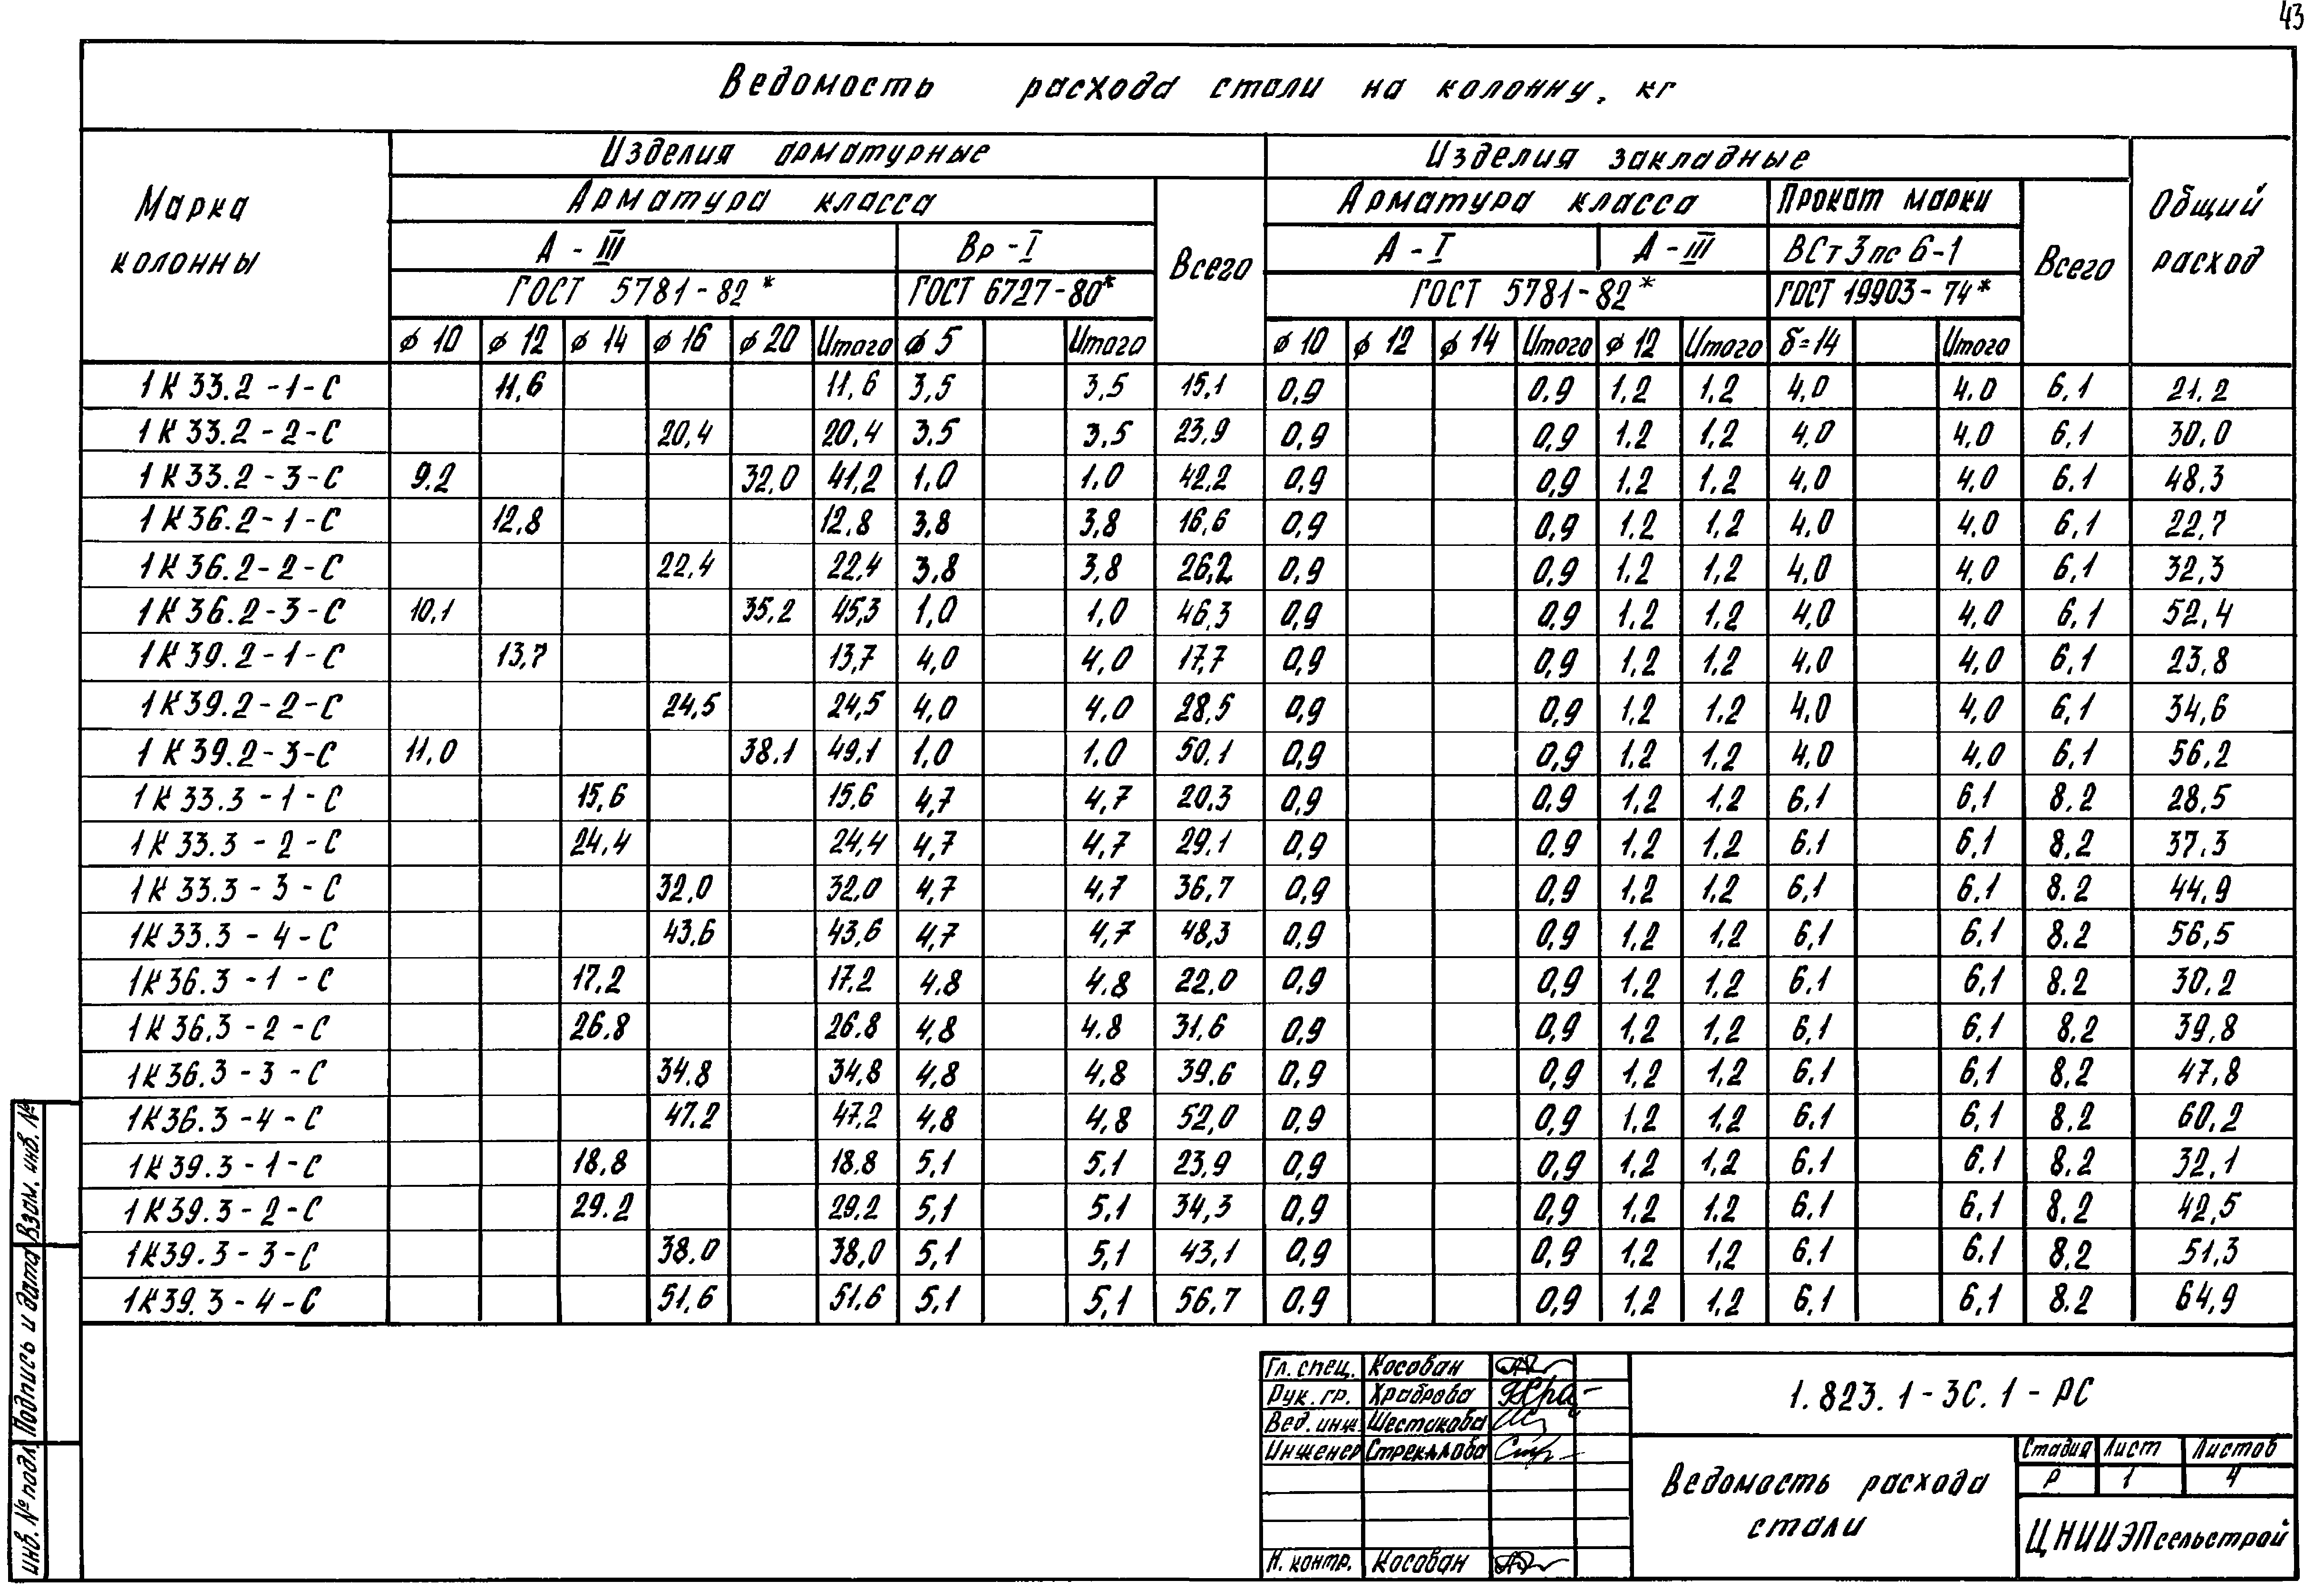 43
Ведомость расхода стали на колонну, кг
Марка колонны
Изделия арматурные
Изделия закладные
Общий расход
Арматура класса
Всего
Арматура класса
Прокат марки
Всего
А-III
Вр-I
А-I
А-III
ВСт3пс6-1
ГОСТ 5781-82*
ГОСТ 6727-80*
ГОСТ 5781-82*
ГОСТ 19903-74*
ф10 ф12 ф14 ф16 ф20 Итого ф5 Итого ф10 ф12 ф14 Итого ф12 Итого δ=14 Итого
1К33.2-1-С 11,6 11,6 3,5 3,5 15,1 0,9 0.9 1.2 1.2 4,0 4.0 6.1 21.2
1К33.2-2-С 20,4 20,4 3.5 3,5 23,9 0,9 0,9 1.2 1,2 4,0 4,0 6,1 30,0
1К33.2-3-С 9.2 32,0 41,2 1.0 1.0 42,2 0,9 0,9 1.2 1,2 4,0 4,0 6,1 48,3
1К36.2-1-С 12,8 12,8 3,8 3,8 16,6 0,9 0,9 1.2 1,2 4,0 4,0 6,1 22,7
1К36.2-2-С 22,4 22,4 3,8 3,8 26,2 0,9 0,9 1.2 1,2 4,0 4,0 6,1 32,3
1К36.2-3-С 10,1 35,2 45,3 1,0 1,0 46,3 0,9 0,9 1,2 1,2 4,0 4,0 6,1 52,4
1К39.2-1-С 13,7 13,7 4,0 4,0 17,7 0,9 0,9 1,2 1,2 4,0 4,0 6,1 23,8
1К39.2-2-С 24,5 24,5 4,0 4,0 28,5 0,9 0,9 1,2 1.2 4,0 4,0 6,1 34,6
1К39.2-3-С 11,0 38.1 49,1 1,0 1.0 50,1 0,9 0,9 1.2 1,2 4,0 4,0 6,1 56,2
1К33.3-1-С 15,6 15,6 4,7 4,7 20,3 0,9 0,9 1,2 1,2 6.1 6,1 8.2 28,5
1К33.3-2-С 24,4 24,4 4,7 4,7 29,1 0,9 0,9 1.2 1,2 6.1 6,1 8.2 37.3
1К33.3-3-С 32,0 32,0 4,7 4,7 36,7 0,9 0,9 1,2 1,2 6,1 6,1 8.2 44,9
1К33.3-4-С 43,6 43,6 4,7 4,7 48,3 0,9 0,9 1.2 1,2 6,1 6,1 8.2 56,5
1К36.3-1-С 17,2 17,2 4.8 4.8 22.0 0,9 0,9 1,2 1,2 6,1 6,1 8.2 30,2
1К36.3-2-С 26.8 26.8 4,8 4.8 31,6 0,9 0,9 1,2 1,2 6,1 6,1 8.2 39,8
1К36.3-3-С 34.8 34,8 4,8 4,8 39,6 0,9 0,9 1,2 1,2 6.1 6,1 8.2 47,8
1К36.3-4-С 47.2 47,2 4,8 4,8 52,0 0,9 0,9 1,2 1,2 6.1 6,1 8.2 60,2
1К39.3-1-С 18,8 18.8 5,1 5,1 23,9 0,9 0,9 1,2 1,2 6.1 6.1 8.2 32,1
1К39.3-2-С 29.2 29,2 5,1 5,1 34,3 0,9 0,9 1.2 1.2 6.1 6,1 8.2 42,5
1К39.3-3-С 38.0 38,0 5,1 5,1 43,1 0,9 0,9 1,2 1,2 6.1 6.1 8.2 51,3
1К39.3-4-С 51,6 51.6 5,1 5,1 56,7 0,9 0,9 1,2 1,2 6,1 6,1 8.2 64,9
Гл. спец. Косован
Рук. гр. Храброва
Вед. инж. Шестакова
Инженер Стрекалова
Н. контр. Косован
1.823.1-3С.1-РС
Ведомость расхода
стали
Стадия Лист Листов
Р 1 4
ЦНИИЭПсельстрой
Инв. № подл. Подпись и дата Взам. инв. №